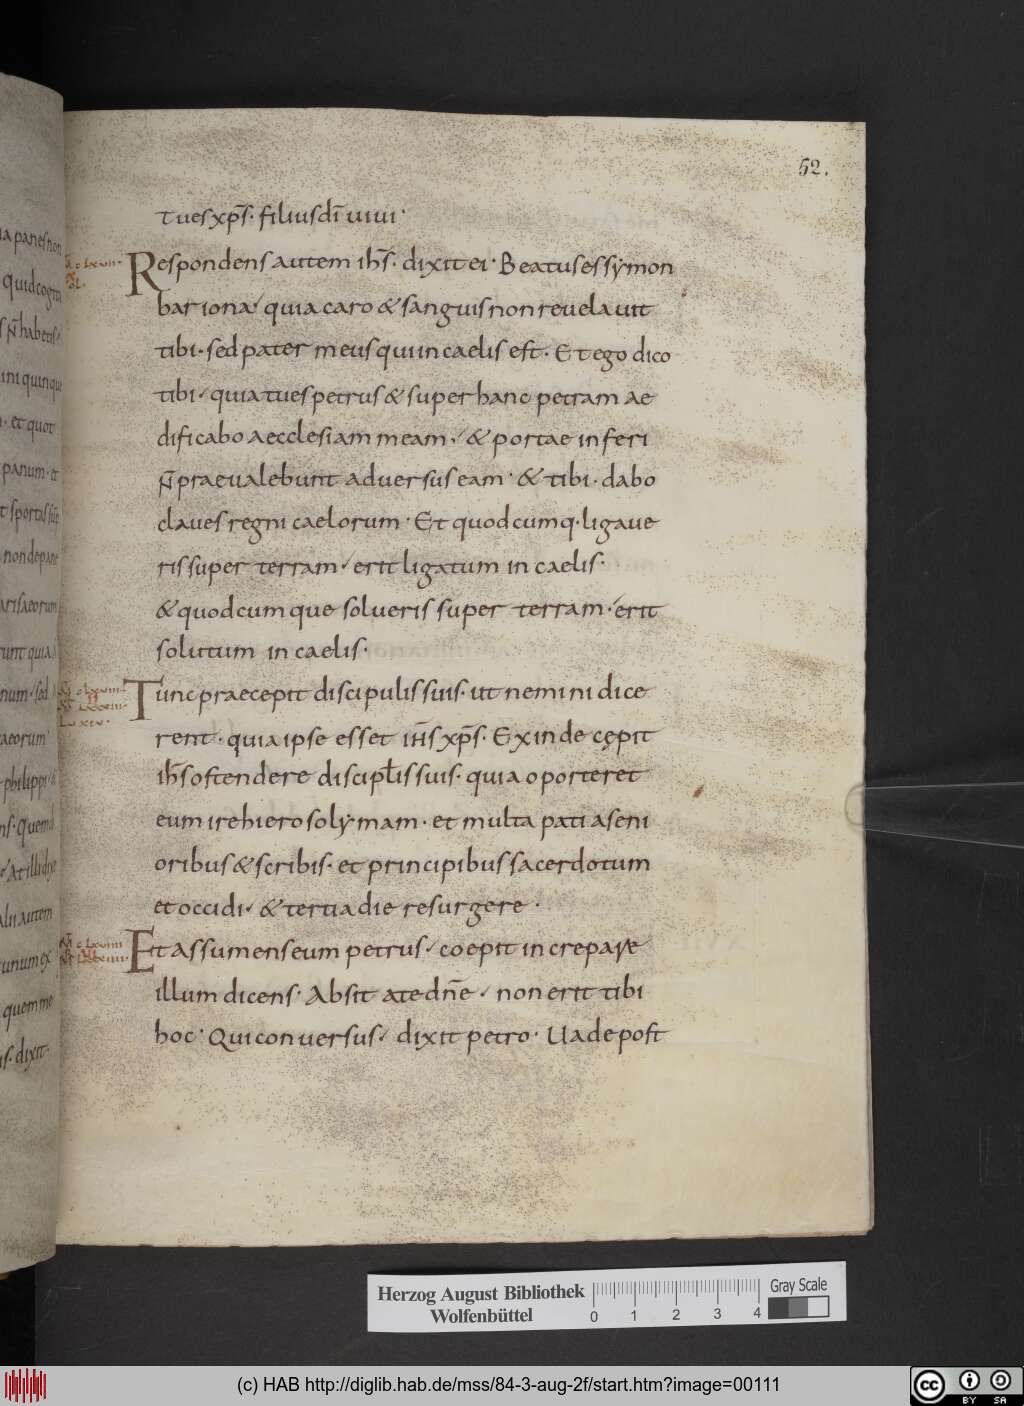 52.
Tu es xp̄s· filius dī uiui·
Respondens autem ih̄s· dixit ei· Beatus es symon
bar iona quia caro & sanguis non reuelauit
tibi· sed pater meus qui in caelis est· Et ego dico
tibi· quia tu es petrus & super hanc petram ae
dificabo aecclesiam meam· & portae inferi
n̄ praeualebunt aduersus eam· & tibi· dabo
claues regni caelorum· Et quodcumq· ligaue
ris super terram erit ligatum in caelis·
& quodcumque solueris super terram· erit
solutum in caelis·
Tunc praecepit discipulis suis· ut nemini dice
rent· quia ipse esset ih̄s xp̄s· Exinde cępit
ih̄s ostendere discipl̄is suis· quia oporteret
eum ire hierosolymam· et multa pati a seni
oribus & scribis· et principibus sacerdotum
et occidi· & tertia die resurgere·
Et assumens eum petrus· coepit increpare
illum dicens· Absit a te dn̄e· non erit tibi
hoc· Qui conuersus· dixit petro· Uade post
panes non
quid cogita
n̄ habetis
ni quinque
et quot
panum· et
sportas
non de pane
arisaeorum
runt quia
num· sed
aeorum
philippi
quem
At illi
alii autem
unum ex
quem me
dixit·
Herzog August Bibliothek
Wolfenbüttel
0 1 2 3 4
Gray Scale
(c) HAB http://diglib.hab.de/mss/84-3-aug-2f/start.htm?image=00111
cc BY SA